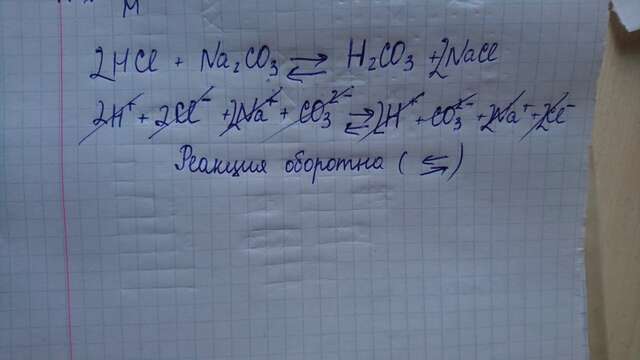 M
2HCl + Na₂CO₃ ⇄ H₂CO₃ + 2NaCl
2H⁺ + 2Cl⁻ + 2Na⁺ + CO₃²⁻ ⇄ 2H⁺ + CO₃²⁻ + 2Na⁺ + 2Cl⁻
Реакция оборотна (⇆)